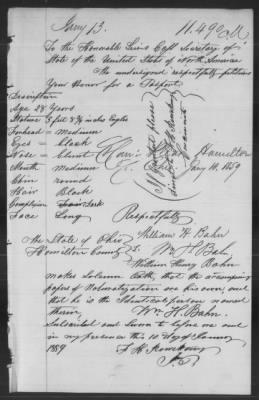 Jany 13.
To the Honorable Lewis Cass Secretary of
State of the United States of North America
The undersigned respectfully petitions
Your Honor for a Passport
Description
Age 28 Years
Stature 5 feet 8¾ inches English
Forehead = Medium
Eyes = black
Nose = blunt
Mouth medium
Chin round
Hair Black
Complexion
Face Long
Hamilton
Ohio Jany 10, 1859
Respectfully
William H Bahn
The State of Ohio
Hamilton County
Wm H Bahn
William Henry Bahn
makes solemn Oath, that the accompanying
papers of Naturalization are his own, and
that he is the Identical person named
therein,
Wm H. Bahn.
Subscribed and Sworn to before me and
in my presence this 10 Day of January
1859